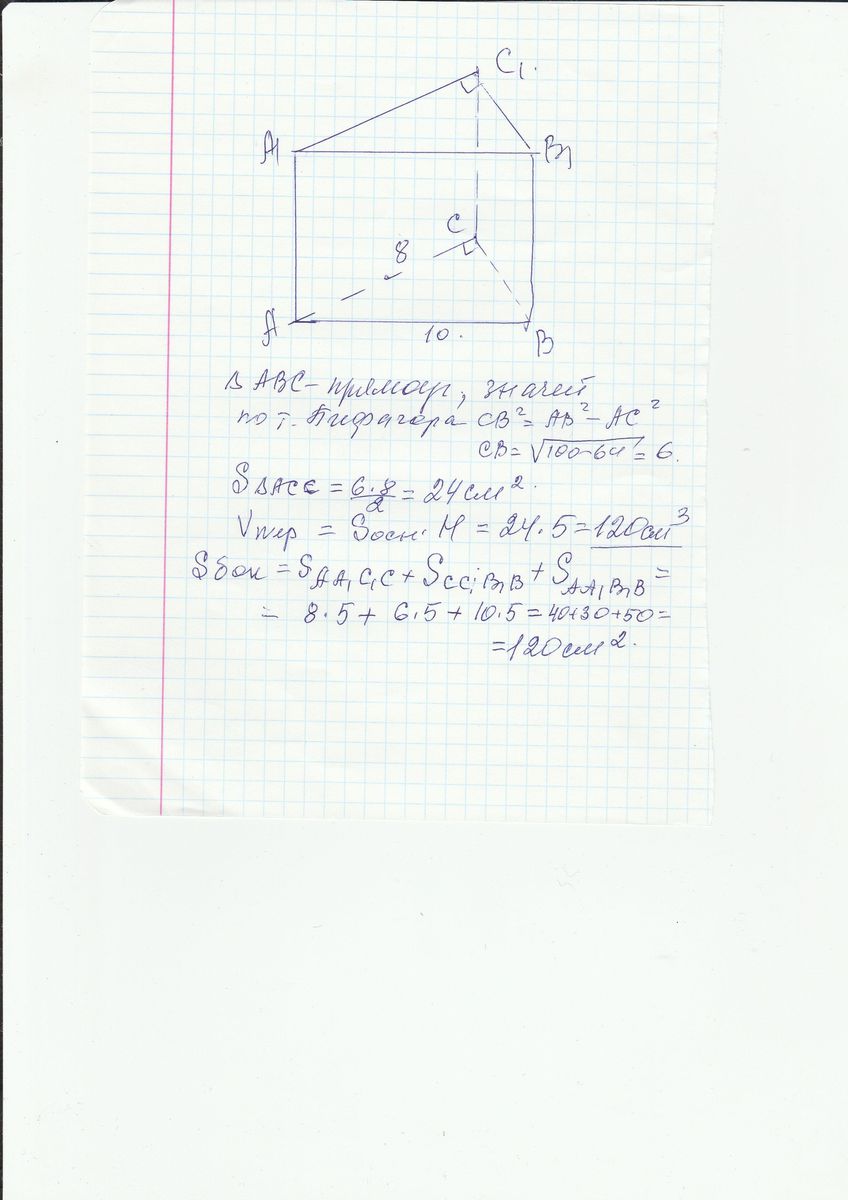 C₁.
A₁
B₁
C
8
A
10.
B
Δ ABC – прямоуг, значит
по т. Пифагора CB² = AB² – AC²
CB = √100-64 = 6.
S ΔACC = 6·8/2 = 24 см².
V = Sосн · H = 24·5 = 120 см³
Sбок = S AA₁C₁C + S CC₁B₁B + S AA₁B₁B =
= 8·5 + 6·5 + 10·5 = 40+30+50 =
= 120 см².